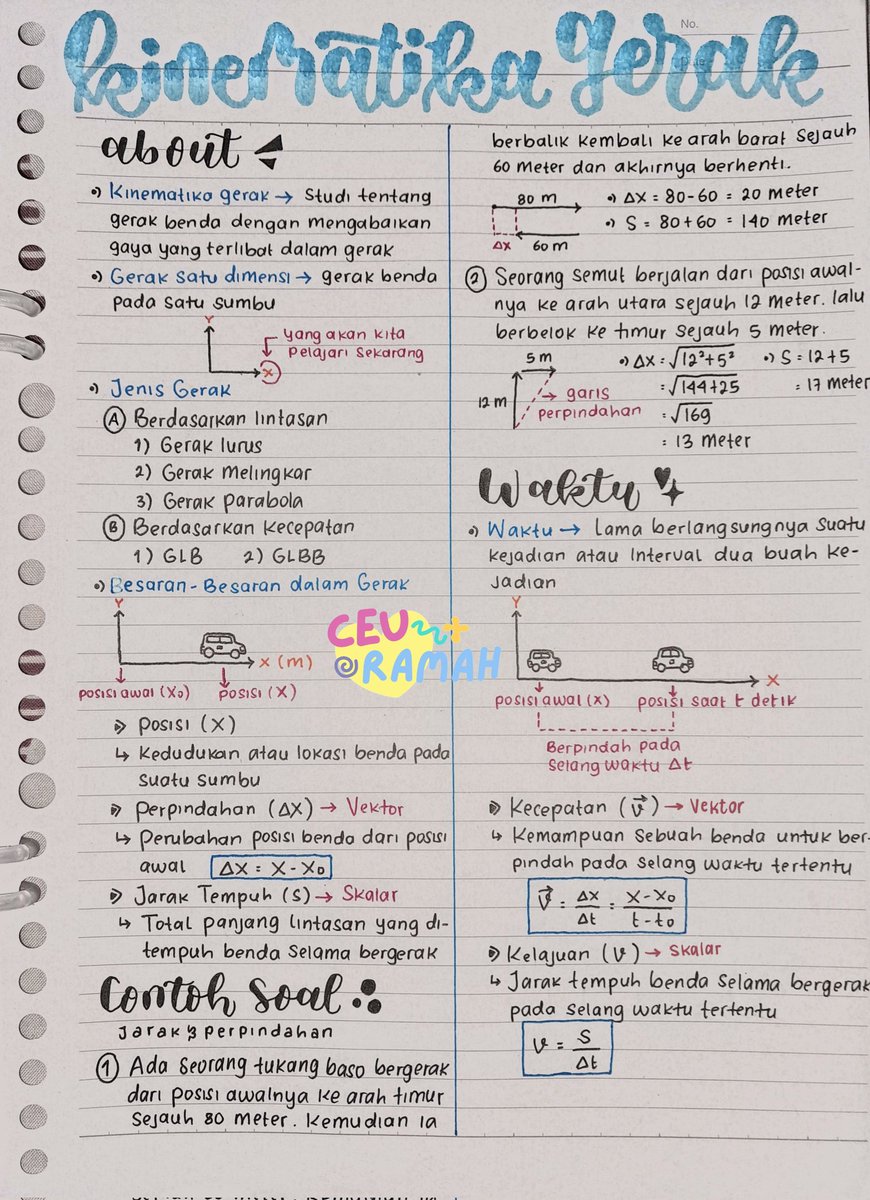 No.
kinematika gerak
about
•) Kinematika gerak → Studi tentang
gerak benda dengan mengabaikan
gaya yang terlibat dalam gerak
•) Gerak satu dimensi → gerak benda
pada satu sumbu
Y
X
yang akan kita
pelajari sekarang
•) Jenis Gerak
Ⓐ Berdasarkan lintasan
1) Gerak lurus
2) Gerak melingkar
3) Gerak parabola
Ⓑ Berdasarkan Kecepatan
1) GLB 2) GLBB
•) Besaran-Besaran dalam Gerak
Y
X (m)
posisi awal (X₀) posisi (X)
CEU
@RAMAH
posisi (X)
↳ Kedudukan atau lokasi benda pada
suatu sumbu
Perpindahan (ΔX) → Vektor
↳ Perubahan posisi benda dari posisi
awal ΔX = X - X₀
Jarak Tempuh (S) → Skalar
↳ Total panjang lintasan yang di-
tempuh benda selama bergerak
Contoh Soal
Jarak & perpindahan
① Ada seorang tukang baso bergerak
dari posisi awalnya ke arah timur
sejauh 80 meter. Kemudian ia
berbalik kembali ke arah barat sejauh
60 meter dan akhirnya berhenti.
80 m
ΔX
60 m
•) ΔX = 80-60 = 20 meter
•) S = 80+60 = 140 meter
② Seorang semut berjalan dari posisi awal-
nya ke arah utara sejauh 12 meter. lalu
berbelok ke timur sejauh 5 meter.
5 m
12 m
garis
perpindahan
•) ΔX = √12²+5²
= √144+25
= √169
= 13 meter
•) S = 12+5
= 17 meter
Waktu
•) Waktu → Lama berlangsungnya suatu
kejadian atau interval dua buah ke-
jadian
Y
X
posisi awal (x) posisi saat t detik
Berpindah pada
selang waktu Δt
Kecepatan (v⃗) → Vektor
↳ Kemampuan sebuah benda untuk ber-
pindah pada selang waktu tertentu
v⃗ = ΔX/Δt = X-X₀/t-t₀
Kelajuan (v) → Skalar
↳ Jarak tempuh benda selama bergerak
pada selang waktu tertentu
v = S/Δt